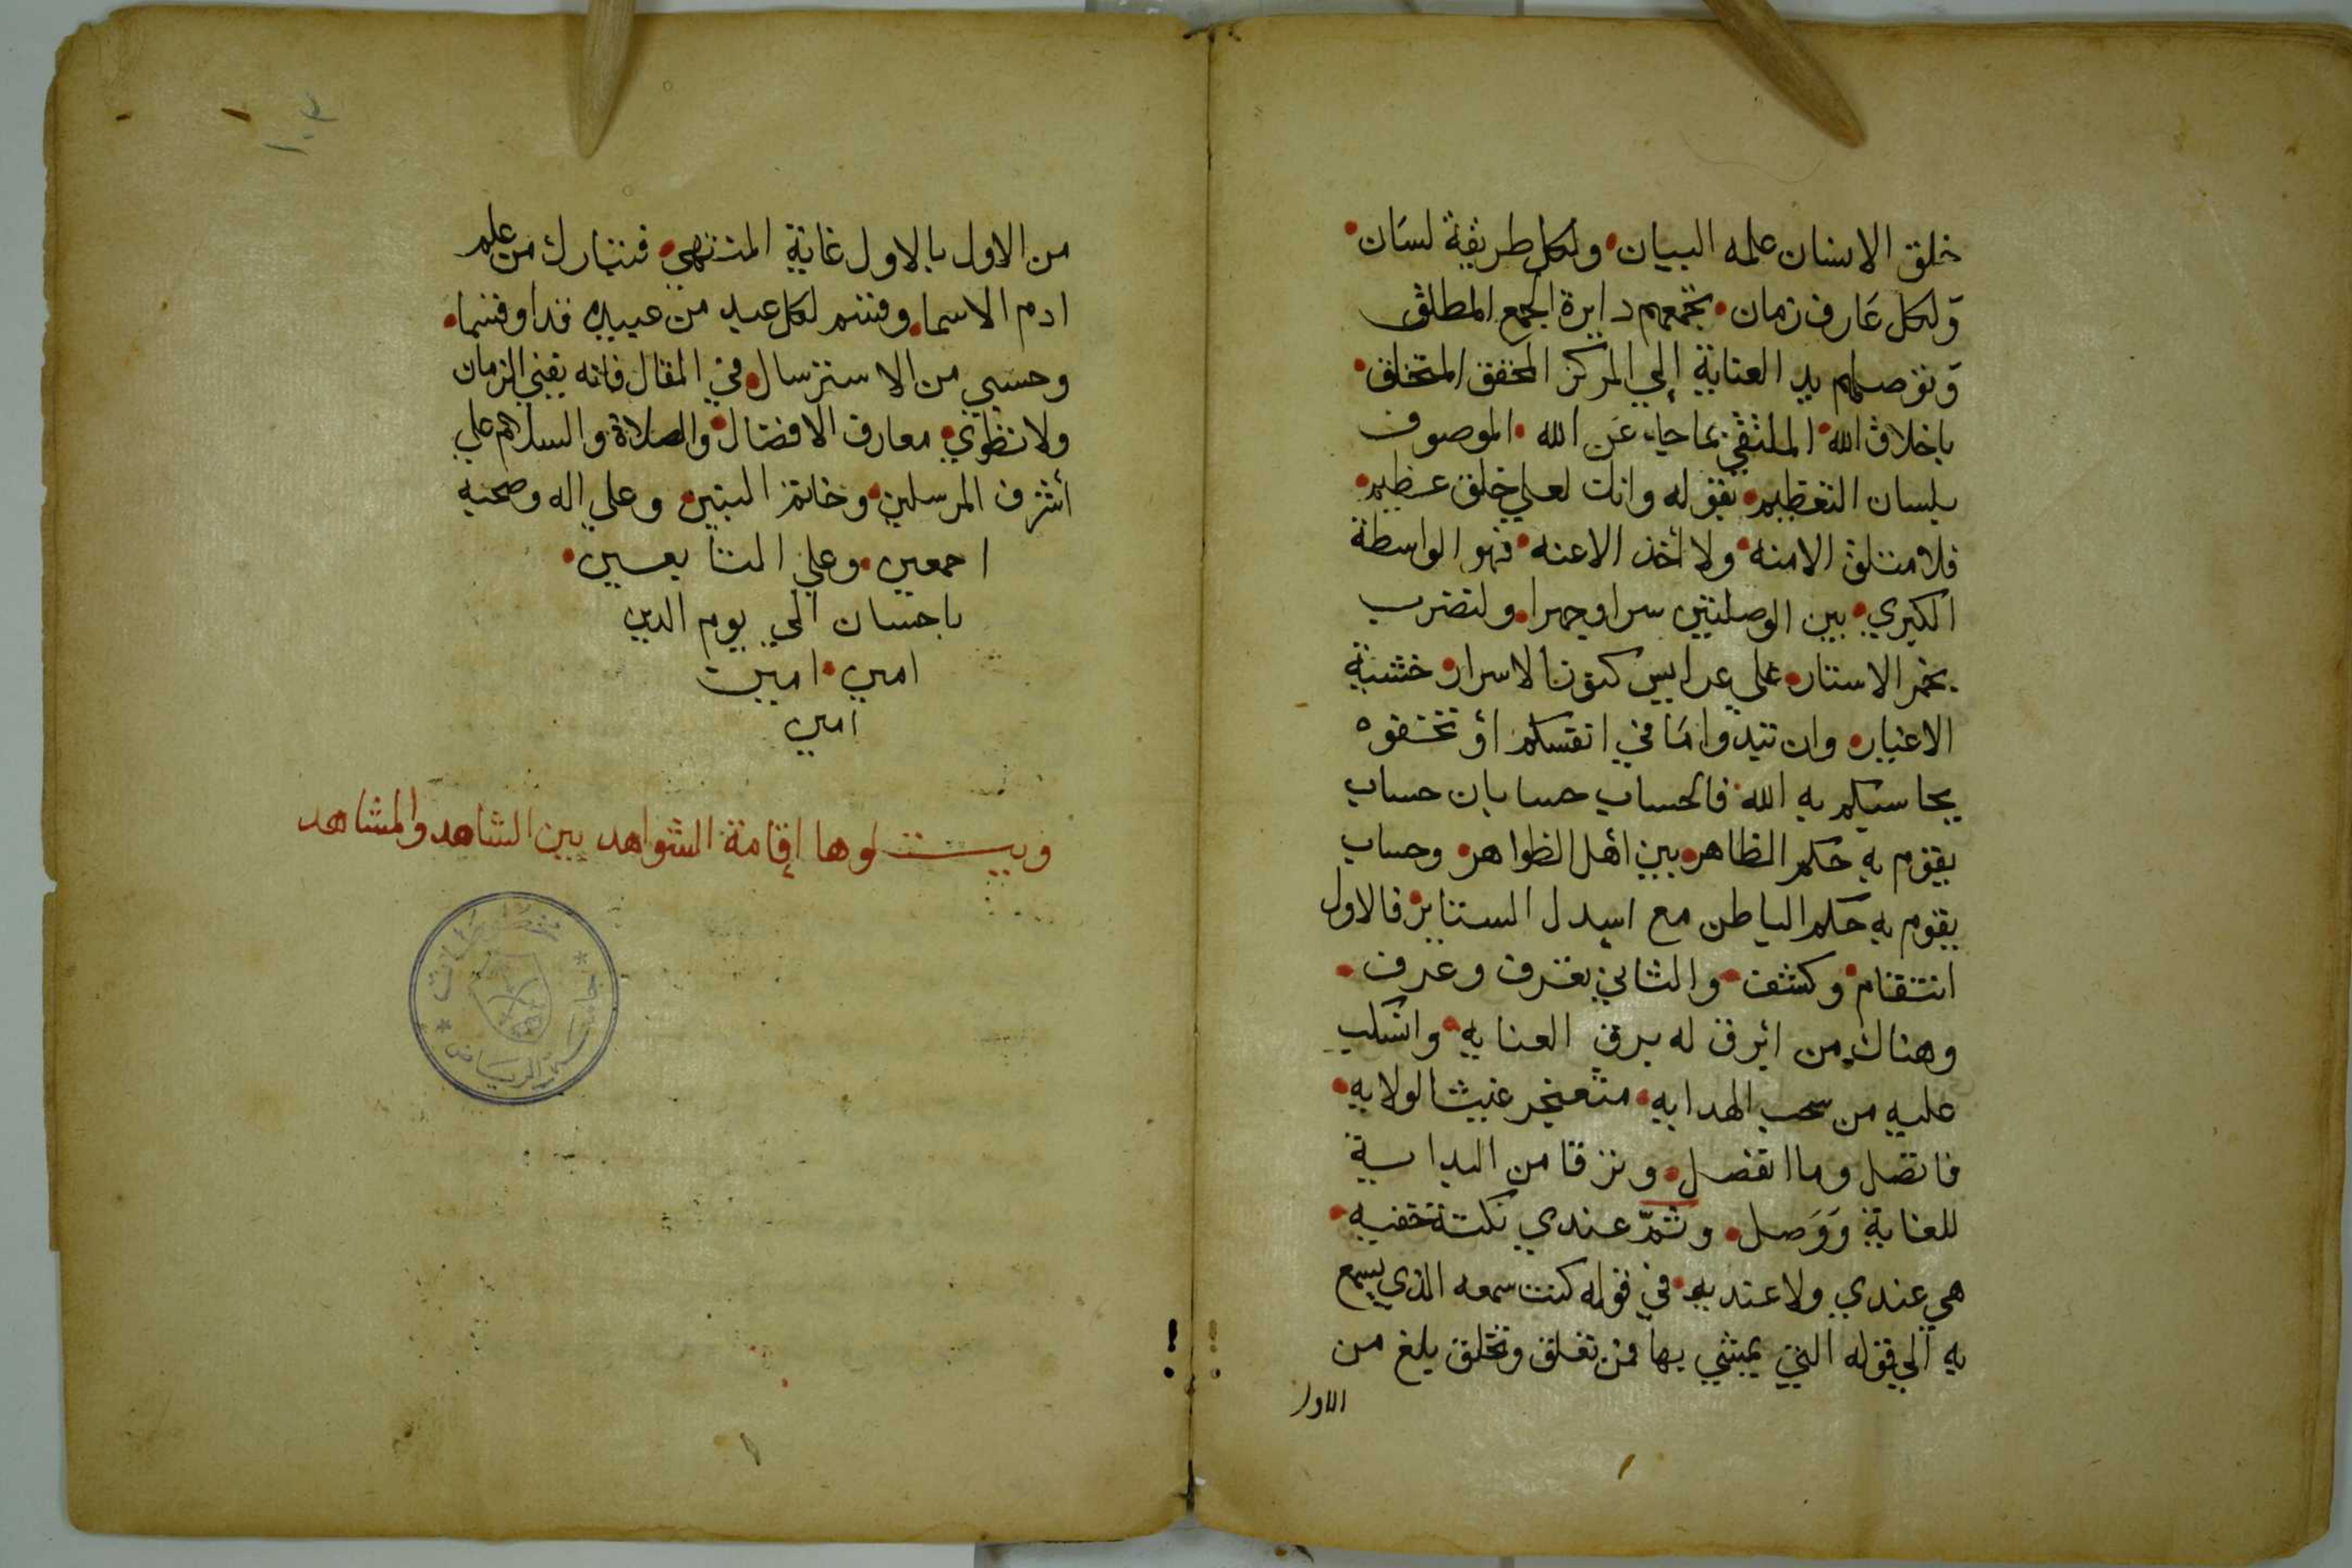 خلق الانسان علمه البيان • ولكل طريقة لسَان •
وَلكل عَارف زمان • تجمعهم دايرة الجمع المطلق
وَتوصلهم يد العناية إلى المركز المحقق المتخلق •
باخلاق الله • الملتقي بما جاء عَن الله • الموصوف
بلسان التعظيم • بقوله وانك لعلي خلق عظيم •
فلا منتلق الامنه • ولا أخذ الاعنه • فهو الواسطة
الكبري • بين الوصلتين سرا وجهرا • ولتضرب
بخمر الاستار • علي عرايس كنوز الاسرار • خشية
الاغيار • وان تبدوا مَا في انفسكم أو تخفوه
يحاسبكم به الله • فالحساب حسابان حساب
يقوم به حكم الظاهر • بين أهل الظواهر • وحساب
يقوم به حكم الباطن مع اسدل الستاير • فالاول
انتقام • وكشف • والثاني تعرف وعرف •
وهناك من ابرق له برق العنايه • وانسكب
عليه من سحب الهدايه • مثعنجر غيث الولايه •
فاتصل وما انفصل • وترقا من البداية
للغاية وَوَصل • وثمّ عندي نكتة خفيه •
هي عندي ولا عنديه • في قوله كنت سمعه الذي يسمع
به الي قوله التي يمشي بها فمن تعلق وتخلق بلغ من
الاول
من الاول بالاول غاية المنتهي • فتبارك من علم
ادم الاسما • وقسم لكل عبد من عبيده قدرا وقسما •
وحسبي من الاسترسال • في المقال فانه يفني الزمان
ولا تنطوي • معارف الافضال • والصلاة والسلام علي
أشرف المرسلين • وخاتم النبيين • وعلي اله وصحبه
اجمعين • وعلي التابعين •
باحسان الي يوم الدين
امين • امين
امين
ويتلوها إقامة الشواهد بين الشاهد والمشاهد
مخطوطات
جامعة الرياض